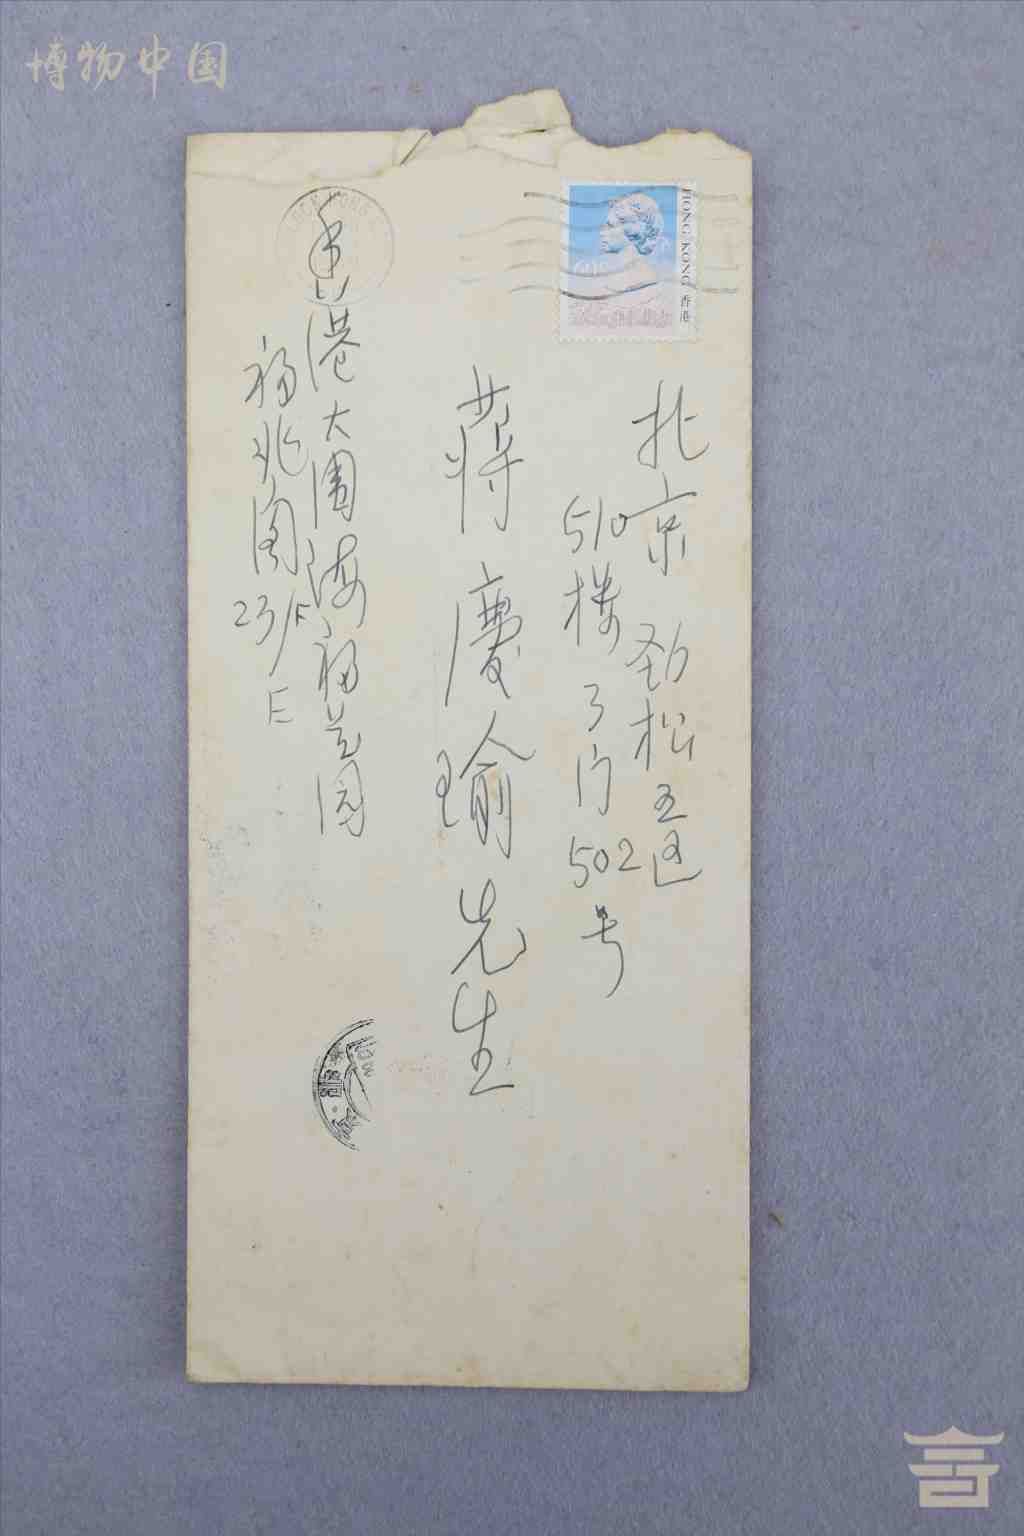 博物中国
HONG KONG 香港
北京劲松五区
510楼3门502号
蒋慶瑜先生
香港大围海福花园
福兆阁23/F
E